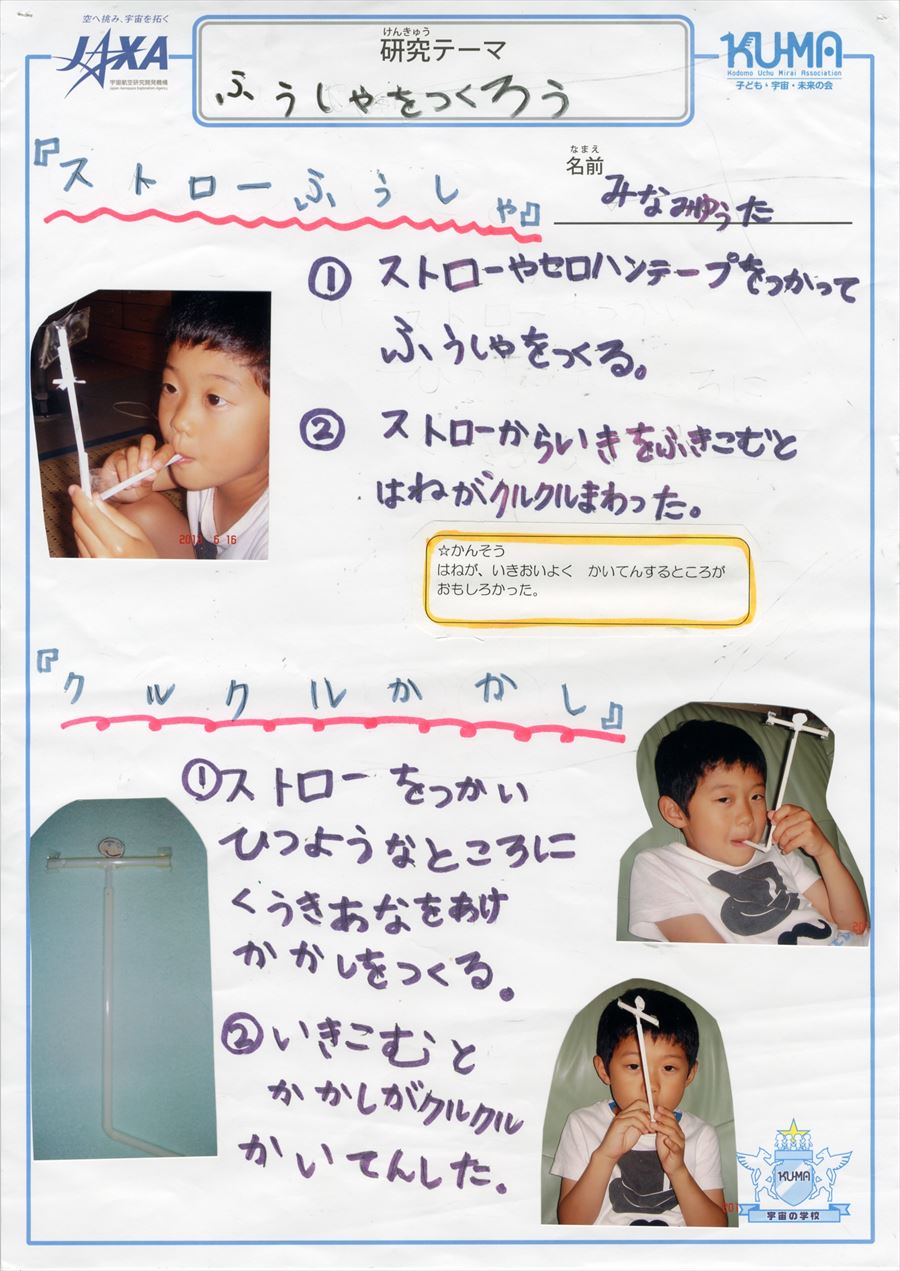 空へ挑み、宇宙を拓く
JAXA
宇宙航空研究開発機構
Japan Aerospace Exploration Agency
けんきゅう
研究テーマ
ふうしゃをつくろう
KU-MA
Kodomo Uchu Mirai Association
子ども・宇宙・未来の会
『ストローふうしゃ』
なまえ
名前
みなみゆうた
① ストローやセロハンテープをつかって
ふうしゃをつくる。
② ストローからいきをふきこむと
はねがクルクルまわった。
6 16
☆かんそう
はねが、いきおいよく かいてんするところが
おもしろかった。
『クルクルかかし』
①ストローをつかい
ひつようなところに
くうきあなをあけ
かかしをつくる。
②いきこむと
かかしがクルクル
かいてんした。
KU-MA
宇宙の学校